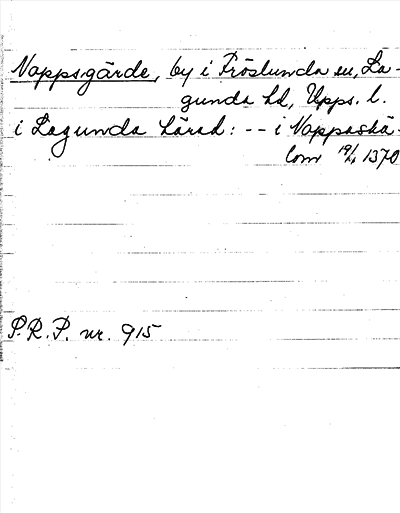 Nappsgärde, by i Fröslunda sn, La-
gunda hd, Upps. l.
i Lagunda härad: -- i Nappaskä-
lom 19/4 1370
P.R.P. nr. 915